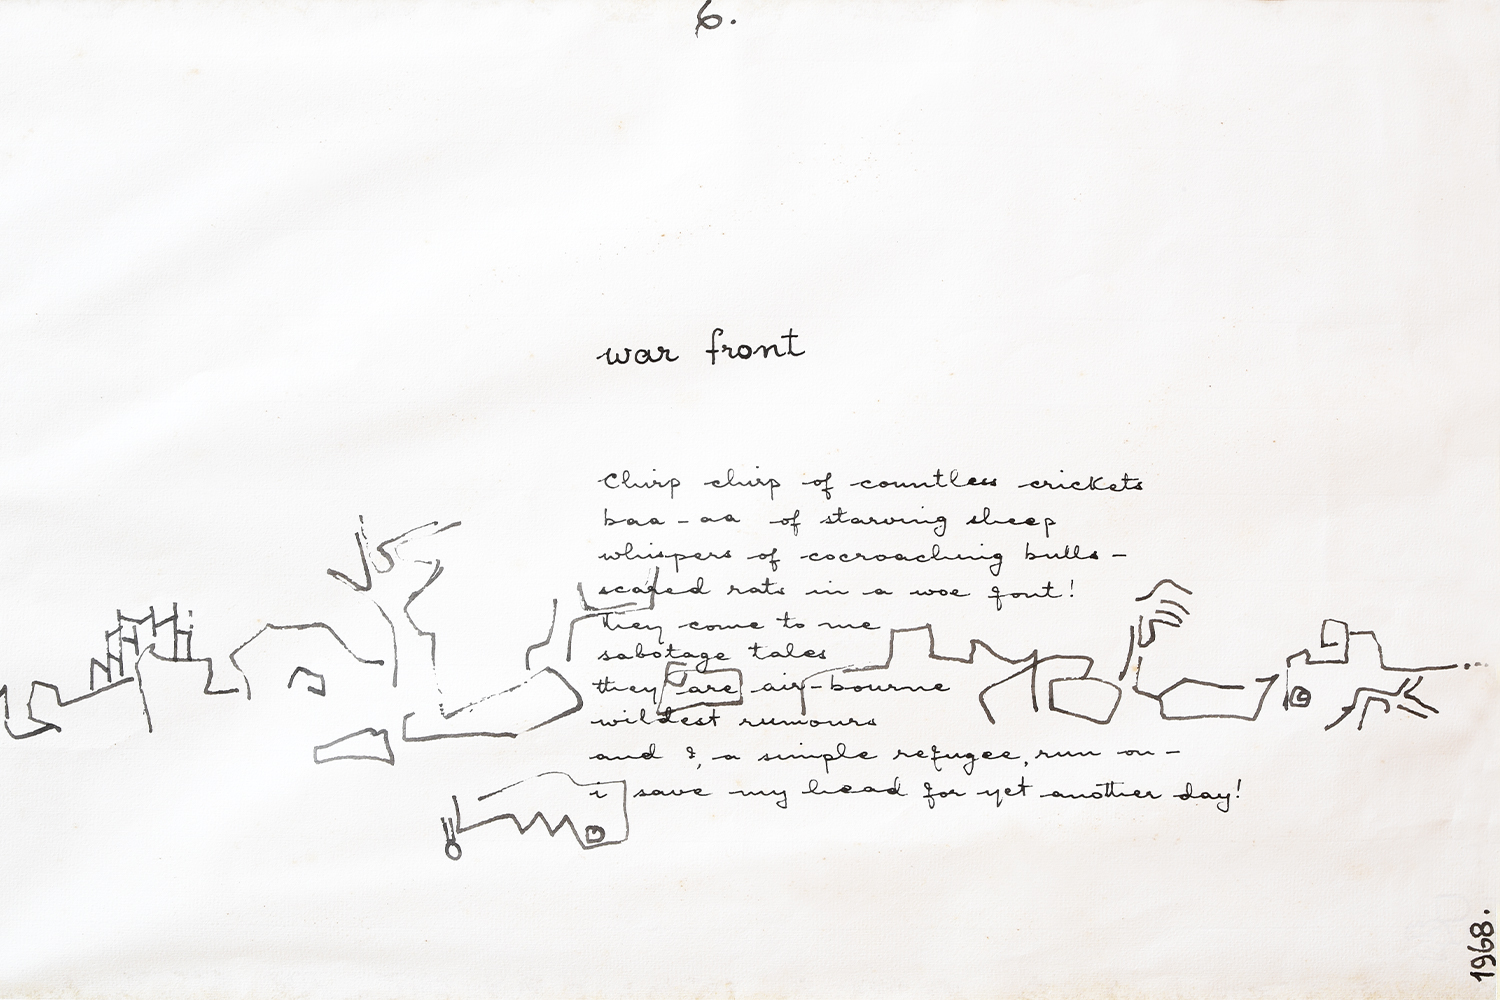 6.
war front
Chirp chirp of countless crickets
baa-aa of starving sheep
whispers of cocroaching bulls -
scared rats in a woe font!
they come to me
sabotage tales
they are air-bourne
wildest rumours
and I, a simple refugee, run on -
i save my head for yet another day!
1968.